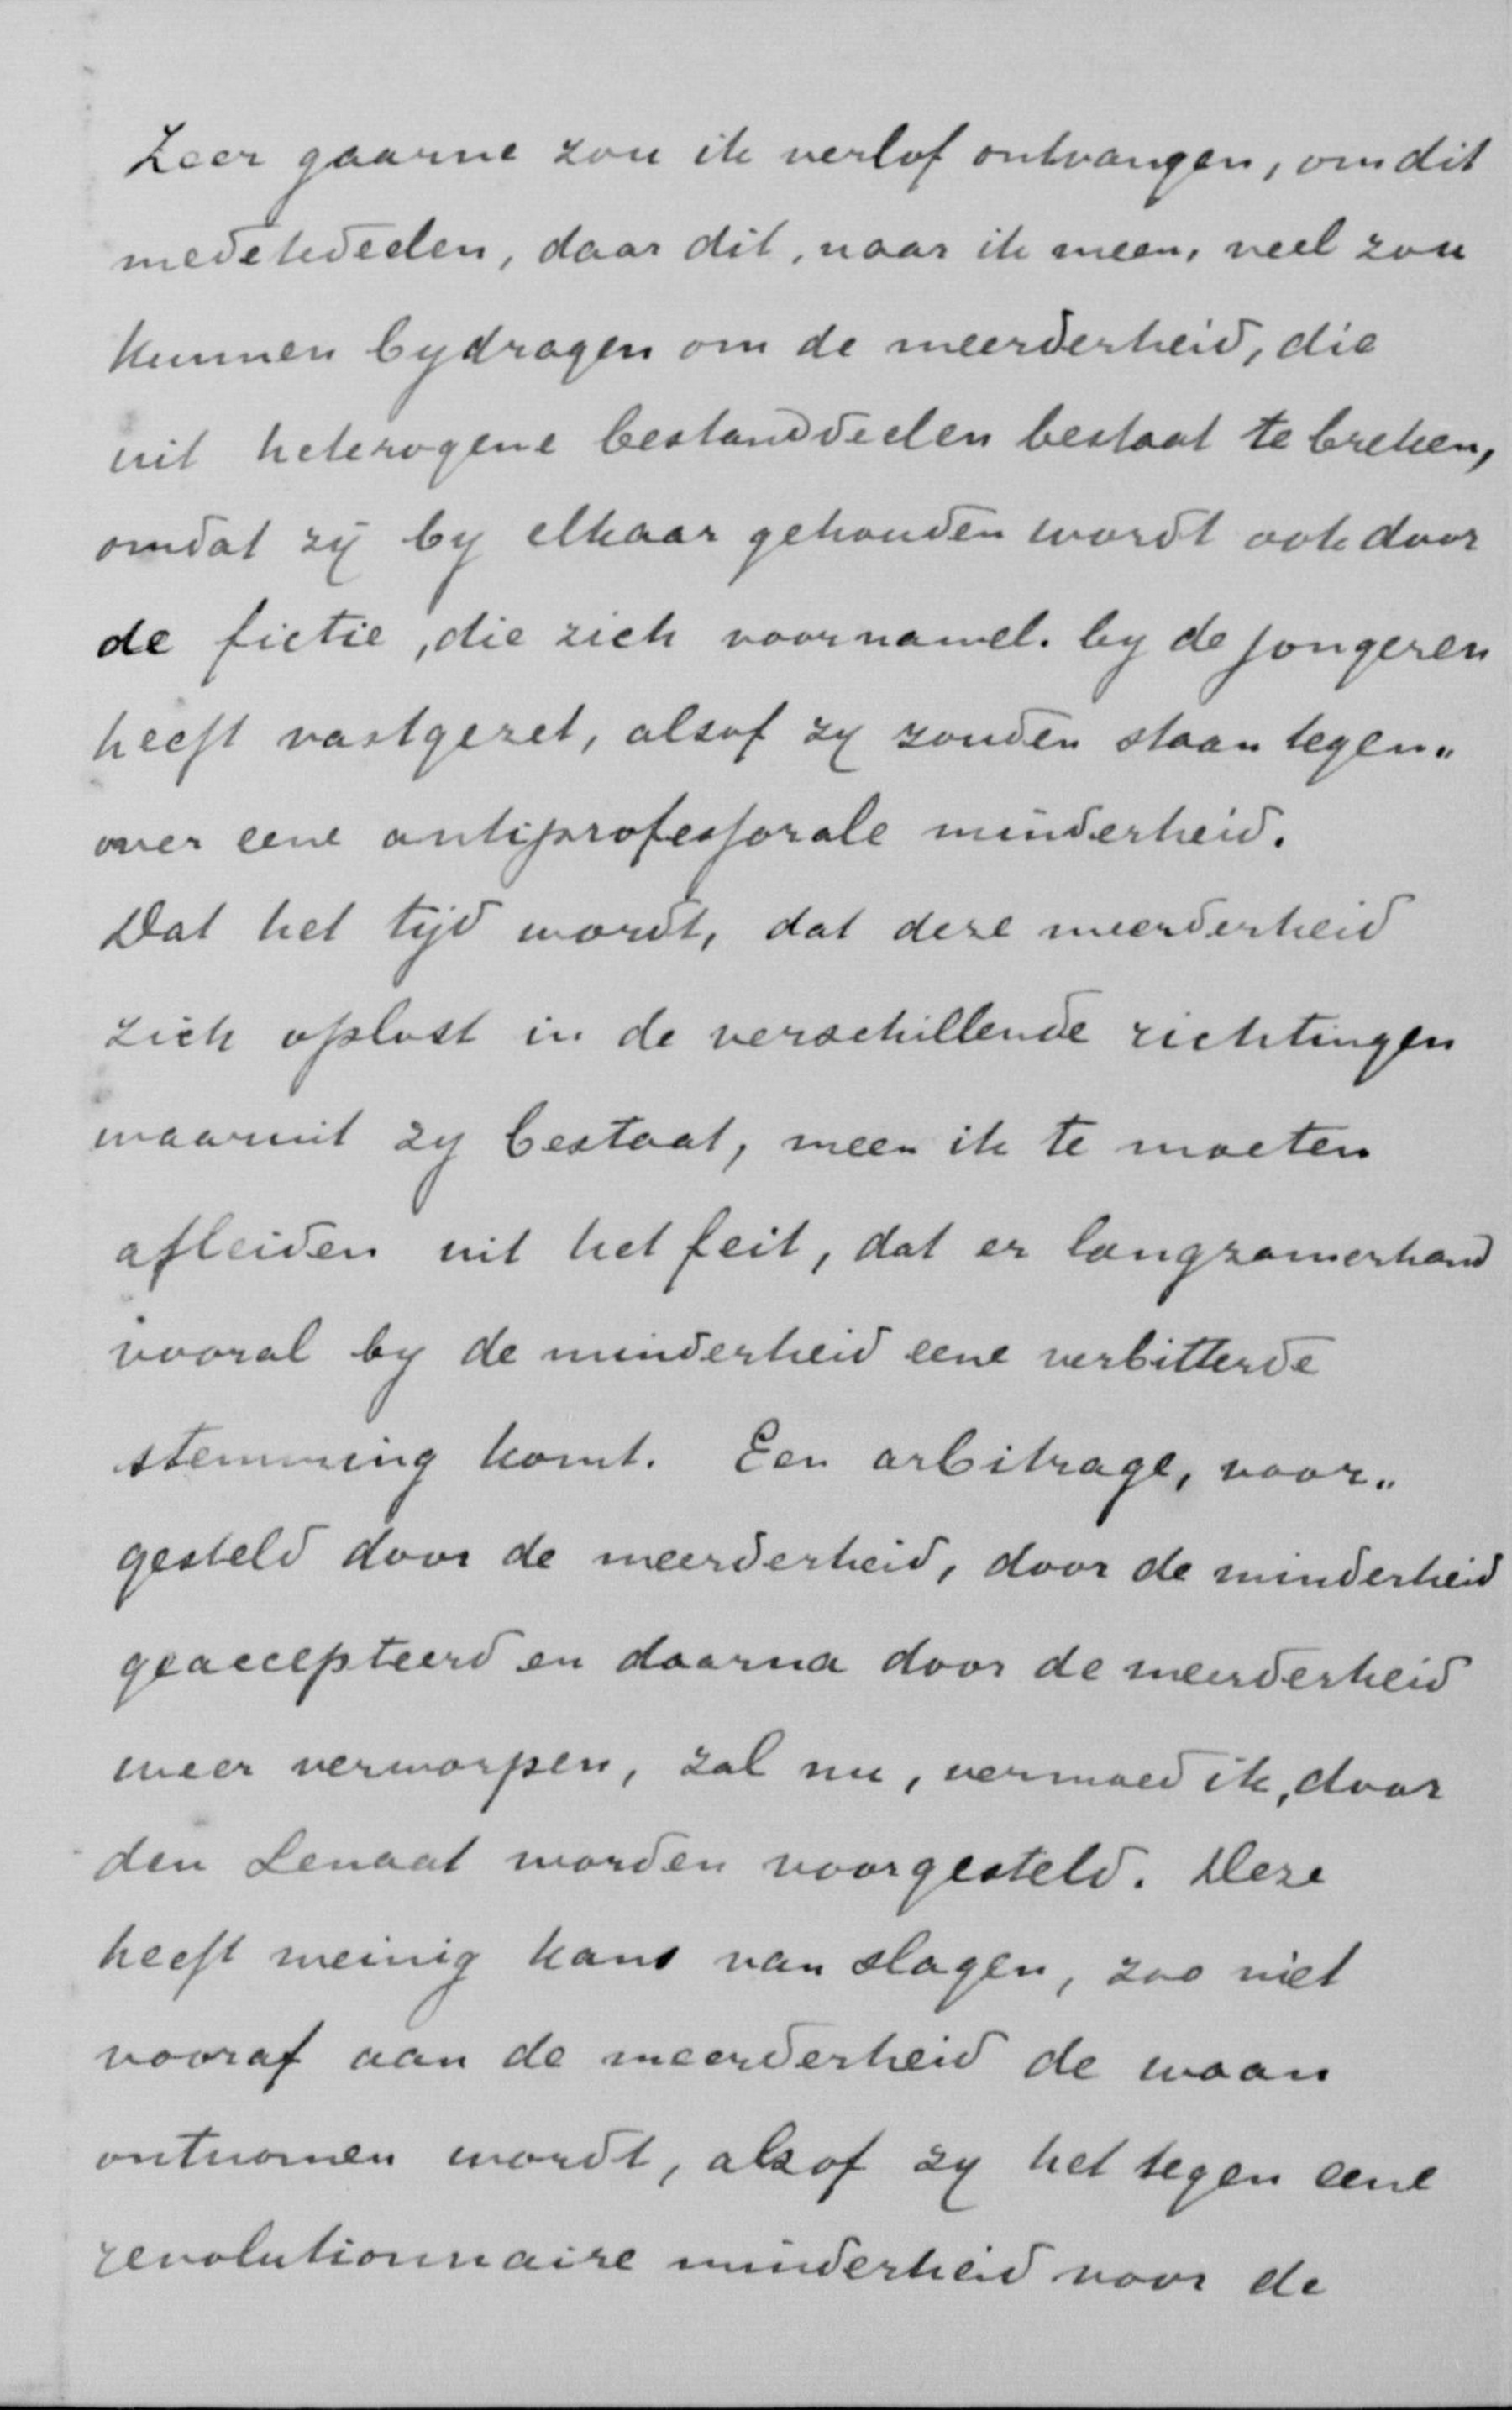 Zeer gaarne zou ik verlof ontvangen, om dit
medetedeelen, daar dit, naar ik meen, veel zou
kunnen bydragen om de meerderheid, die
uit heterogene bestanddeelen bestaat te breken,
omdat zij by elkaar gehouden wordt ook door
de fictie, die zich voornamel. by de jongeren
heeft vastgezet, alsof zy zouden staan tegen„
over eene antiprofessorale minderheid.
Dat het tijd wordt, dat deze meerderheid
zich oplost in de verschillende richtingen
waaruit zy bestaat, meen ik te moeten
afleiden uit het feit, dat er langzamerhand
vooral by de minderheid eene verbitterde
stemming komt. Een arbitrage, voor„
gesteld door de meerderheid, door de minderheid
geaccepteerd en daarna door de meerderheid
weer verworpen, zal nu, vermoed ik, door
den Senaat worden voorgesteld. Deze
heeft weinig kans van slagen, zoo niet
vooraf aan de meerderheid de waan
ontnomen wordt, alsof zy het tegen eene
revolutionnaire minderheid voor de